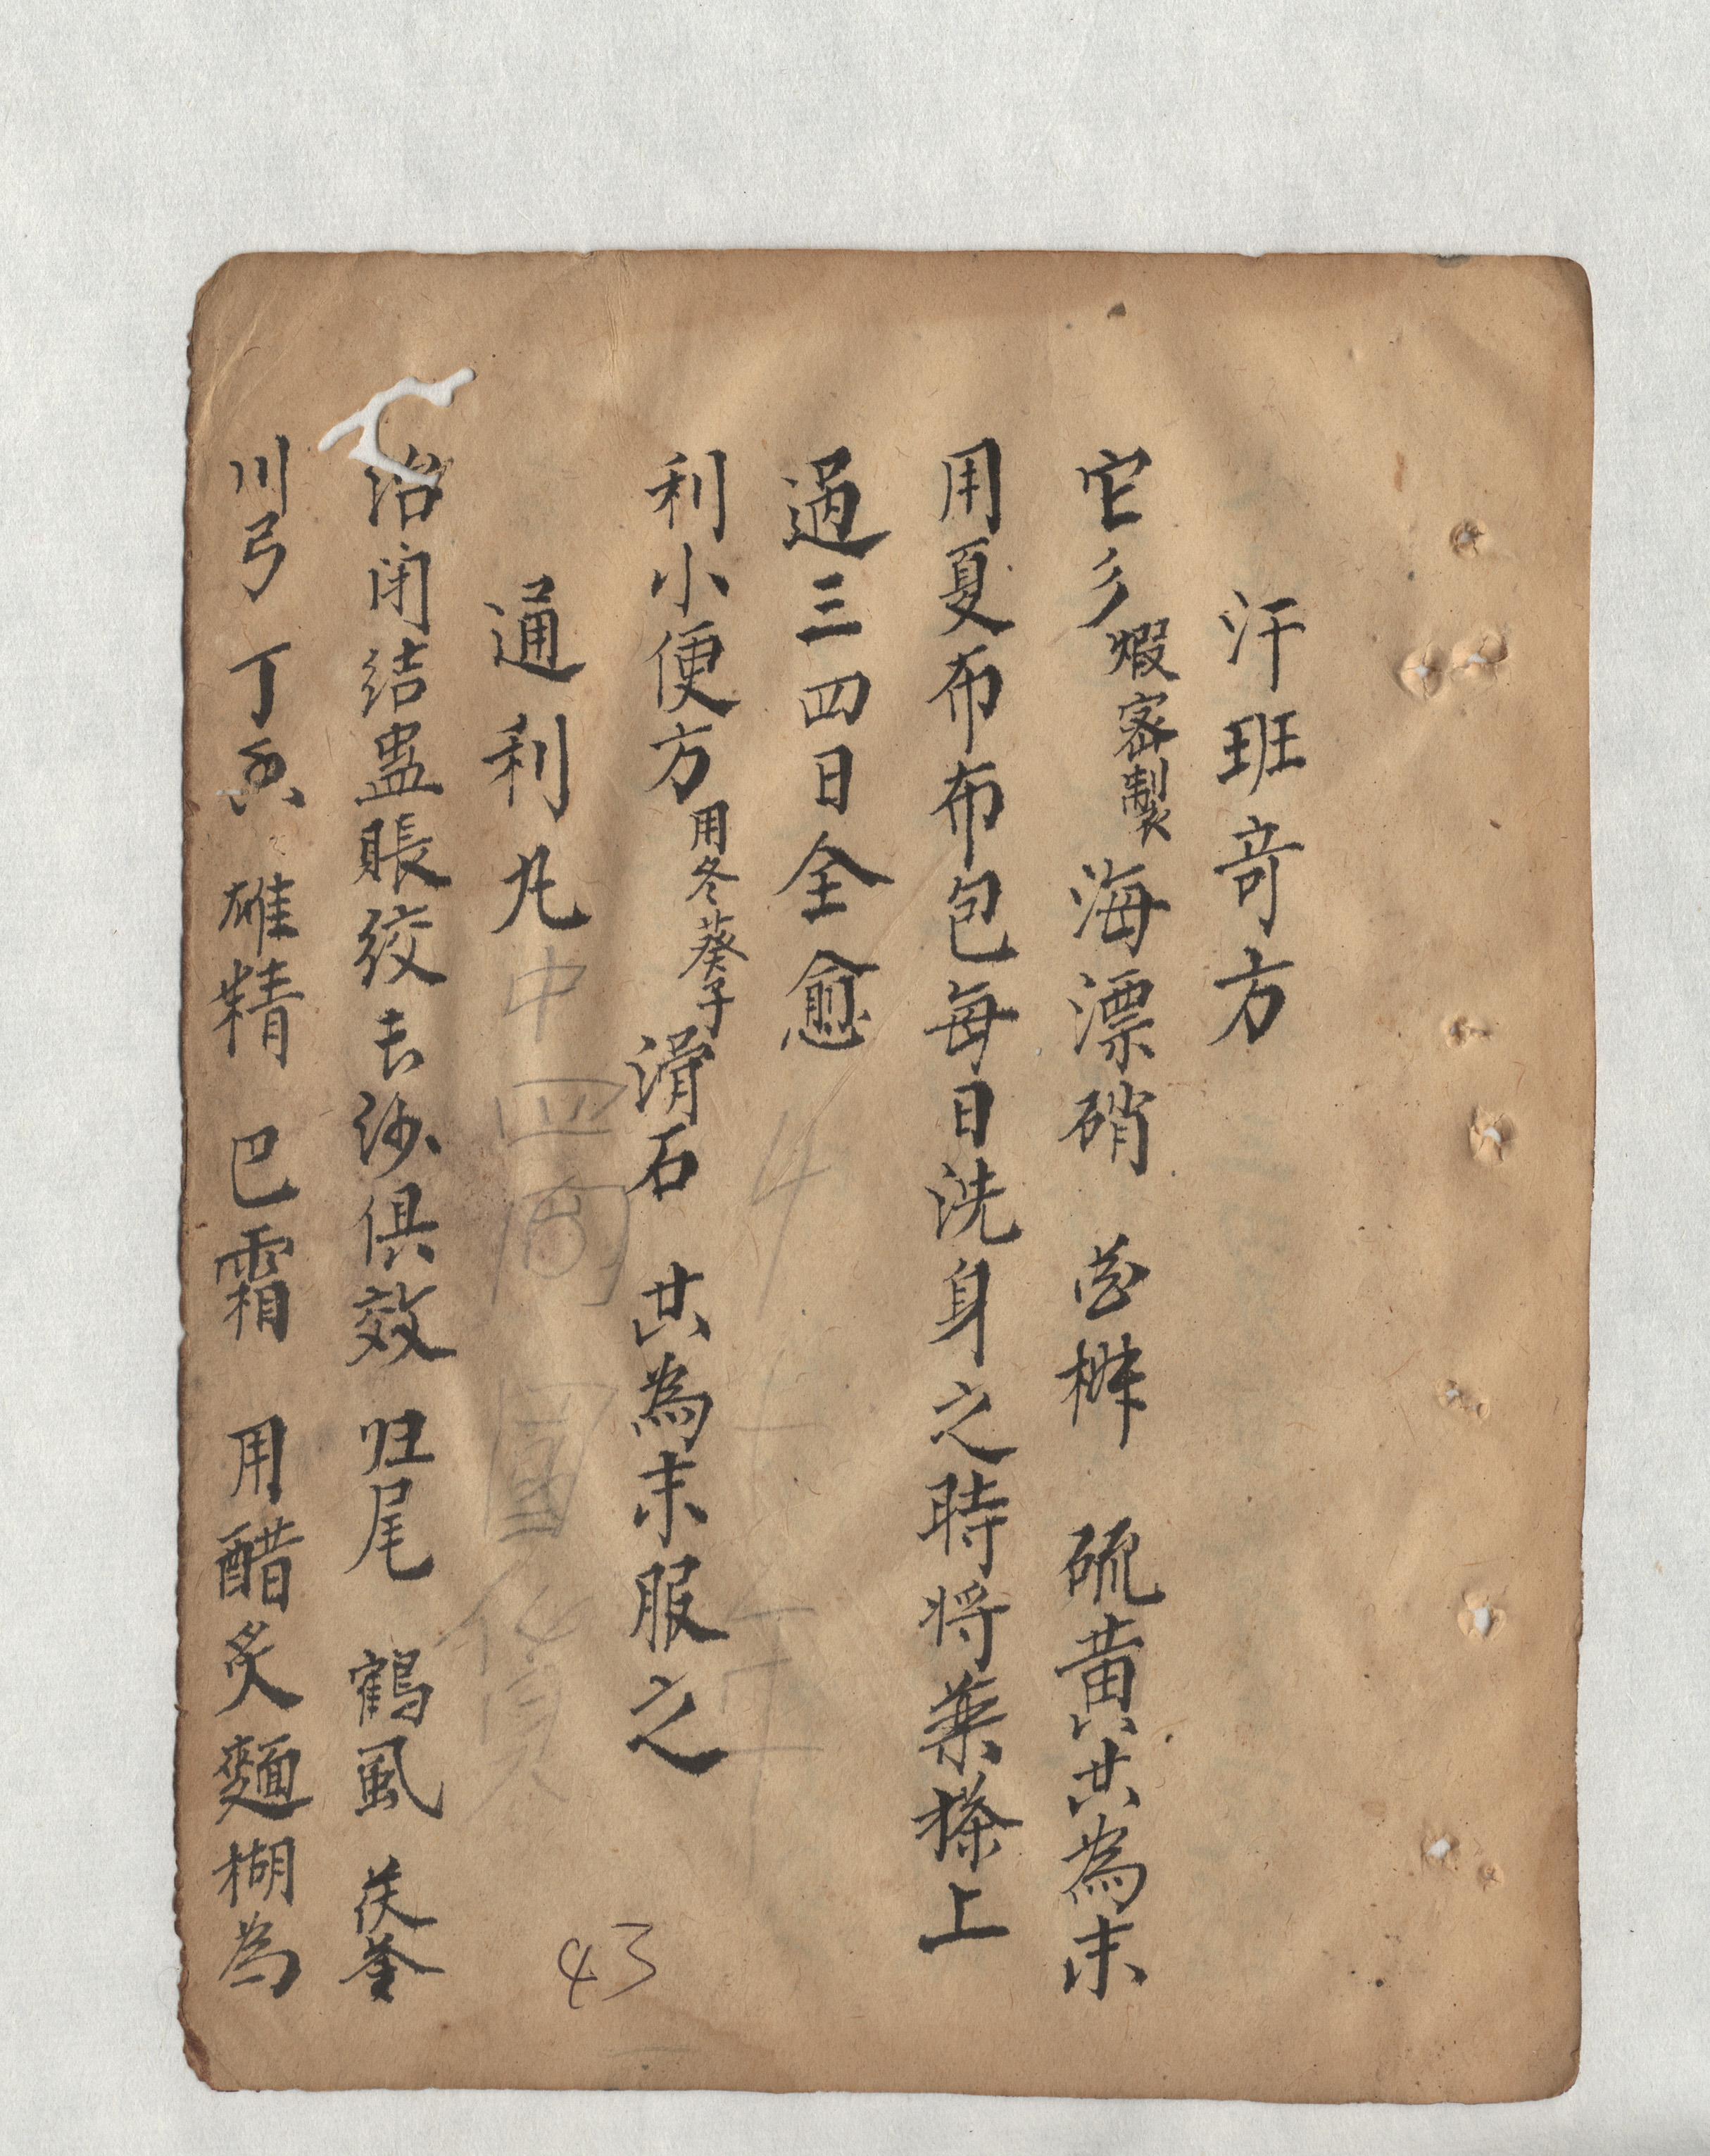 汗班奇方
它乡煆宻製海漂硝 硫黄共為末
用夏布布包每日洗身之時将藥搽上
過三四日全愈
利小便方用冬葵子滑石 共為末服之
通利丸
治闭结蛊賬绞去沙俱效 归尾 鶴虱 茯苓
川弓 丁香 雄精 巴霜 用醋炙麵糊為
43